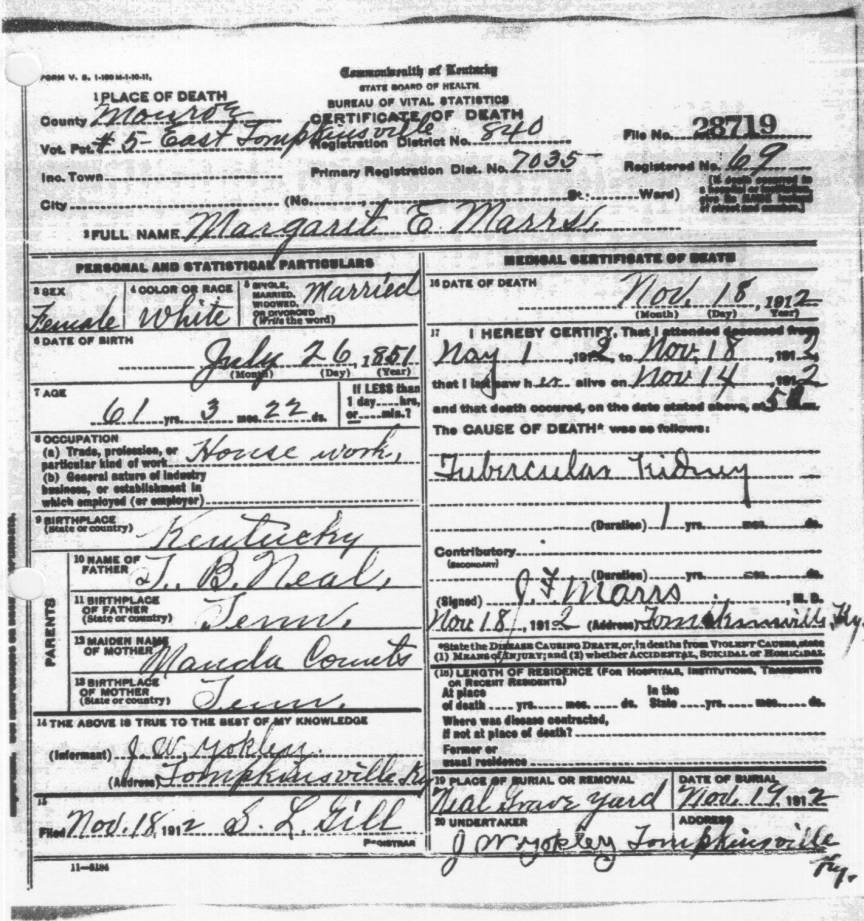 FORM V. S. 1-100 M-1-10-11.
Commonwealth of Kentucky
STATE BOARD OF HEALTH
BUREAU OF VITAL STATISTICS
CERTIFICATE OF DEATH
1 PLACE OF DEATH
County Monroe
Vot. Pct. # 5- East Tompkinsville
Registration District No. 840
File No. 28719
Inc. Town
Primary Registration Dist. No. 7035
Registered No. 69
City (No. , St. Ward)
2 FULL NAME Margarit E. Marrs.
PERSONAL AND STATISTICAL PARTICULARS
3 SEX Female
4 COLOR OR RACE White
5 SINGLE, MARRIED, WIDOWED, OR DIVORCED (Write the word) Married
6 DATE OF BIRTH
July 26, 1851
(Month) (Day) (Year)
7 AGE
61 yrs. 3 mos. 22 ds.
If LESS than 1 day hrs, or min.?
8 OCCUPATION
(a) Trade, profession, or particular kind of work House work,
(b) General nature of industry business, or establishment in which employed (or employer)
9 BIRTHPLACE (State or country) Kentucky
PARENTS
10 NAME OF FATHER T. B. Neal,
11 BIRTHPLACE OF FATHER (State or country) Tenn.
12 MAIDEN NAME OF MOTHER Manda
13 BIRTHPLACE OF MOTHER (State or country) Tenn.
14 THE ABOVE IS TRUE TO THE BEST OF MY KNOWLEDGE
(Informant) J. W. Yokley.
(Address) Tompkinsville Ky
15
Filed Nov. 18, 1912 S. L. Gill
REGISTRAR
11-5184
MEDICAL CERTIFICATE OF DEATH
16 DATE OF DEATH
Nov. 18, 1912
(Month) (Day) (Year)
17 I HEREBY CERTIFY, That I attended deceased from
May 1, 1912, to Nov. 18, 1912,
that I last saw her alive on Nov 14, 1912
and that death occured, on the date stated above, at m.
The CAUSE OF DEATH* was as follows:
Tubercular Kidney
(Duration) 1 yrs. mos. ds.
Contributory
(SECONDARY)
(Duration) yrs. mos. ds.
(Signed) J. F. Marrs, M. D.
Nov. 18, 1912 (Address) Tomkinsville, Ky.
*State the DISEASE CAUSING DEATH, or, in deaths from VIOLENT CAUSES, state
(1) MEANS OF INJURY; and (2) whether ACCIDENTAL, SUICIDAL or HOMICIDAL
(18) LENGTH OF RESIDENCE (FOR HOSPITALS, INSTITUTIONS, TRANSIENTS
OR RECENT RESIDENTS)
At place of death yrs. mos. ds. In the State yrs. mos. ds.
Where was disease contracted,
if not at place of death?
Former or
usual residence
19 PLACE OF BURIAL OR REMOVAL
Neal Grave Yard
DATE OF BURIAL
Nov. 19, 1912
20 UNDERTAKER
J W Yokley
ADDRESS
Tompkinsville Ky.